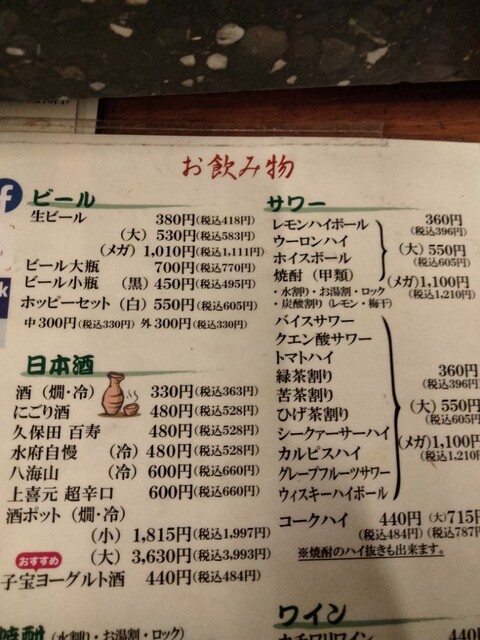 お飲み物
ビール
生ビール 380円(税込418円)
(大) 530円(税込583円)
(メガ) 1,010円(税込1,111円)
ビール大瓶 700円(税込770円)
ビール小瓶 (黒) 450円(税込495円)
ホッピーセット (白) 550円(税込605円)
中300円(税込330円) 外300円(税込330円)
日本酒
酒 (燗・冷) 330円(税込363円)
にごり酒 480円(税込528円)
久保田 百寿 480円(税込528円)
水府自慢 (冷) 480円(税込528円)
八海山 (冷) 600円(税込660円)
上喜元 超辛口 600円(税込660円)
酒ポット (燗・冷)
(小) 1,815円(税込1,997円)
(大) 3,630円(税込3,993円)
おすすめ
子宝ヨーグルト酒 440円(税込484円)
焼酎 (水割り・お湯割・ロック)
サワー
レモンハイボール
ウーロンハイ
ホイスボール
焼酎 (甲類)
・水割り・お湯割・ロック
・炭酸割り (レモン・梅干)
360円
(税込396円)
(大) 550円
(税込605円)
(メガ) 1,100円
(税込1,210円)
バイスサワー
クエン酸サワー
トマトハイ
緑茶割り
苦茶割り
ひげ茶割り
シークァーサーハイ
カルピスハイ
グレープフルーツサワー
ウィスキーハイボール
360円
(税込396円)
(大) 550円
(税込605円)
(メガ) 1,100円
(税込1,210円)
コークハイ 440円 (大)715円
(税込484円) (税込787円)
※焼酎のハイ抜きも出来ます。
ワイン
カチワリワイン 440